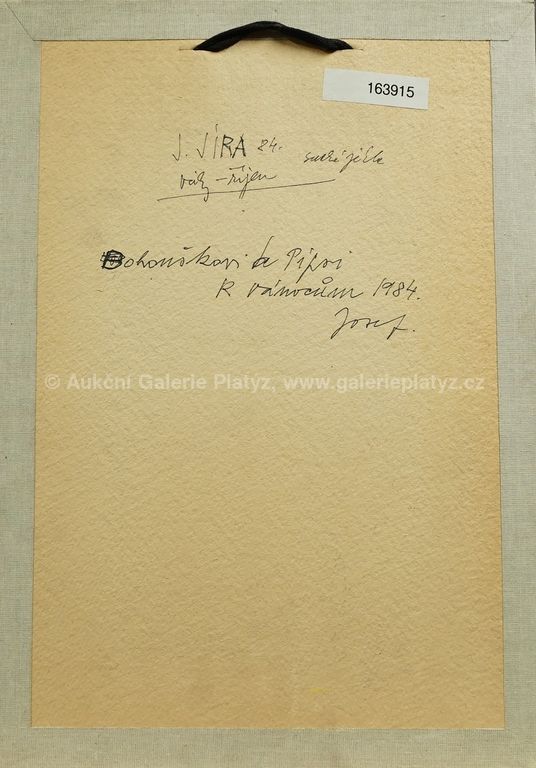 163915
J. JÍRA 84. suchá jehla
září – říjen
Bohouškovi a Pipsi
K vánocům 1984.
Josef.
© Aukční Galerie Platýz, www.galerieplatyz.cz